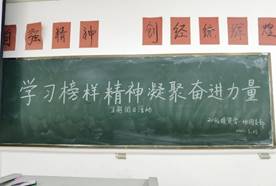 自强精神 创经纶辉
学习榜样精神凝聚奋进力量
主题团日活动